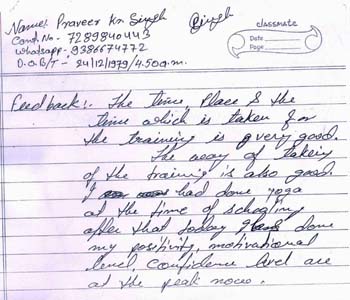 Name: Praveer Kr Singh Singh
Cont. No - 7289840443
Whatsapp - 9386674772
D.O.B/T - 24/12/1979/4.50a.m.
classmate
Date
Page
Feedback:- The time, Place & the
time which is taken for
the training is very good.
The way of takeing
of the training is also good.
I had done yoga
at the time of schooling
after that today I done
my positivity, motivational
level, confidence level are
at the peak now.